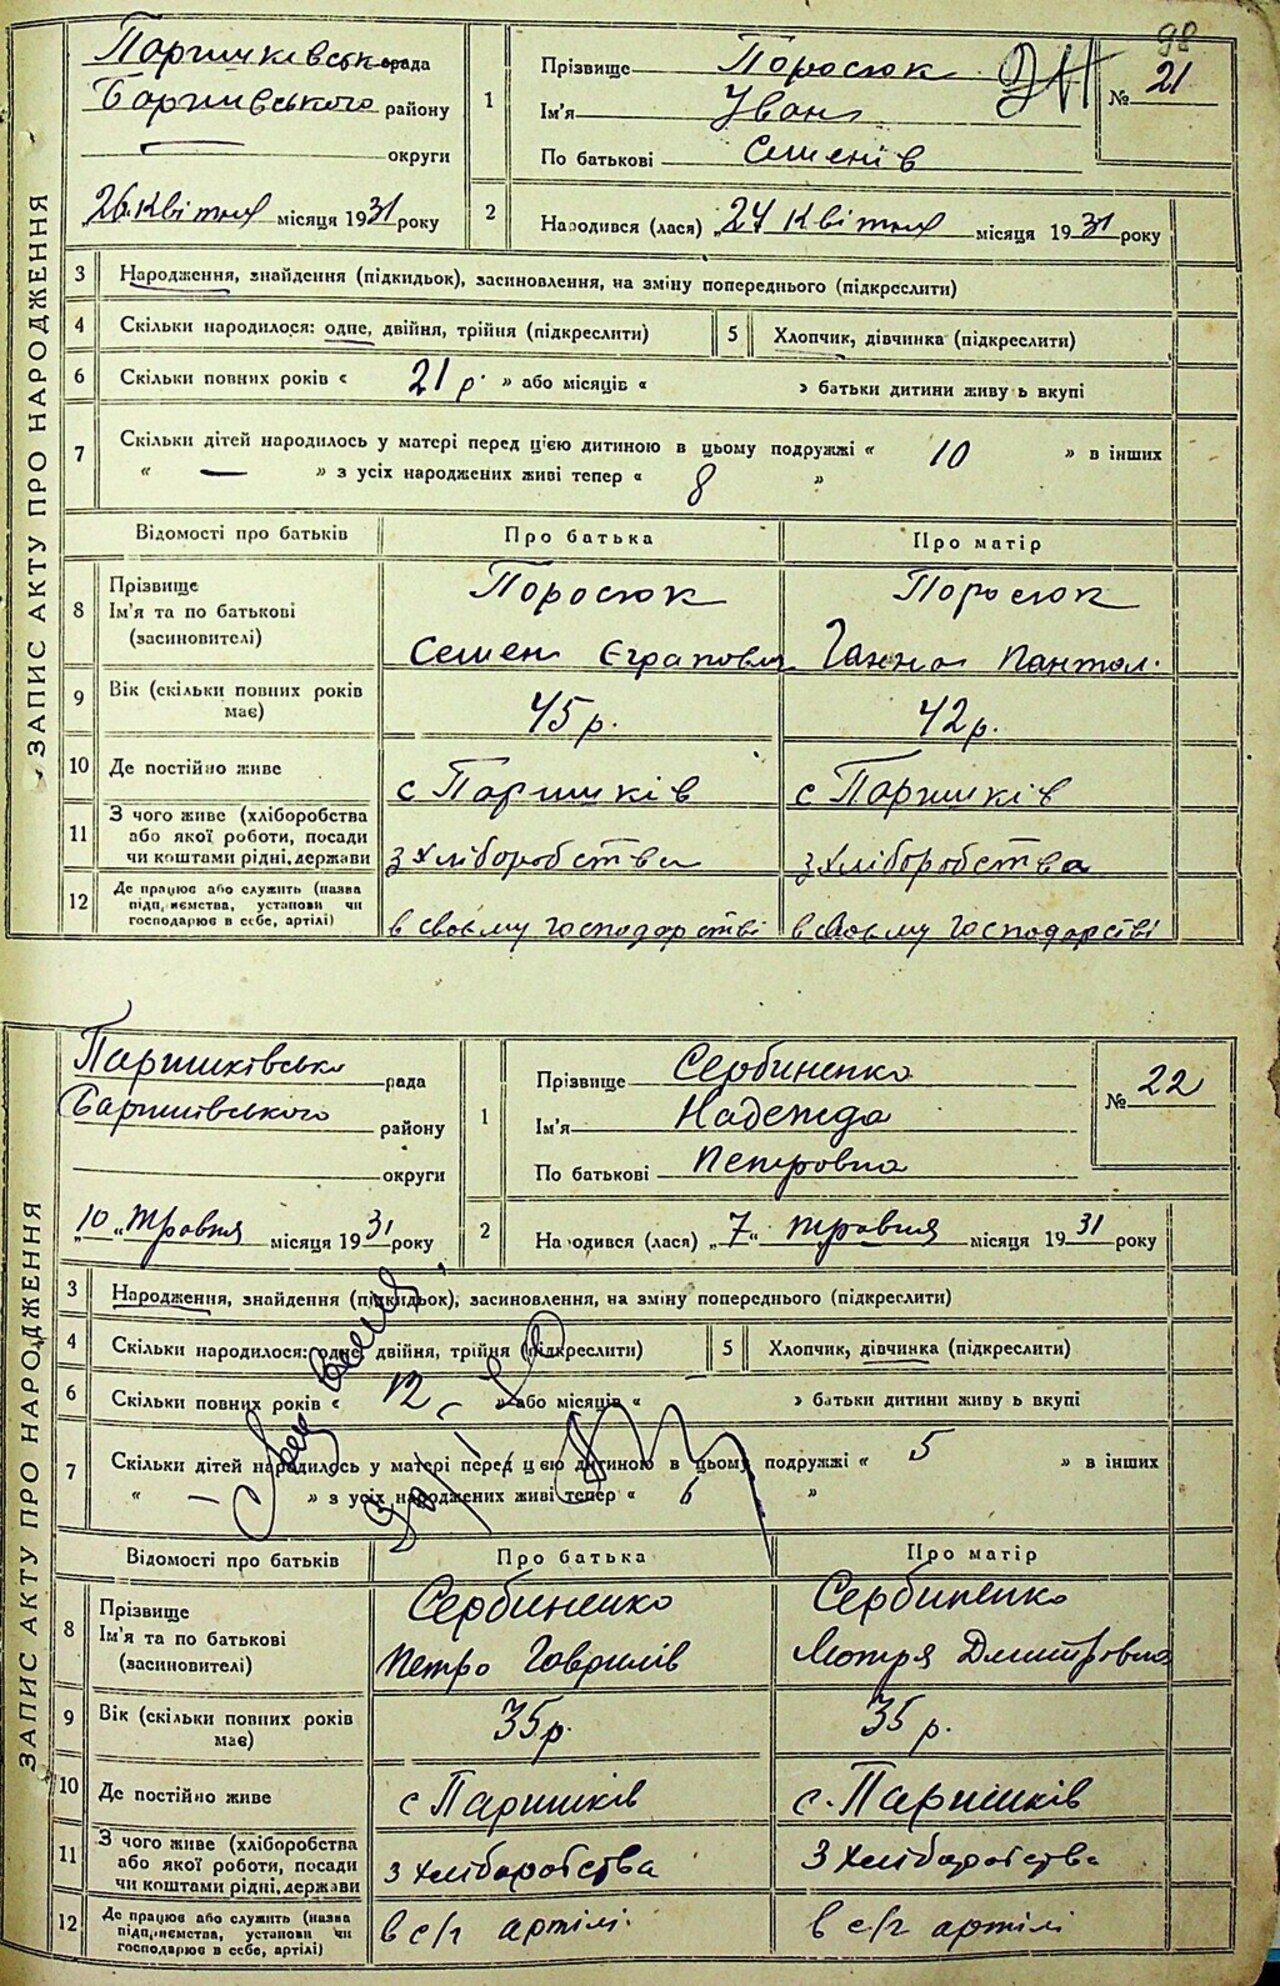 98
ЗАПИС АКТУ ПРО НАРОДЖЕННЯ
Паришківськ рада
Баришівського району
округи
„26„ Квітня місяця 1931 року
1
Прізвище Поросюк
Ім'я Іван
По батькові Семенів
№ 21
2
Народився (лася) „24 Квітня місяця 1931 року
3 Народження, знайдення (підкидьок), засиновлення, на зміну попереднього (підкреслити)
4 Скільки народилося: одне, двійня, трійня (підкреслити)
5 Хлопчик, дівчинка (підкреслити)
6 Скільки повних років « 21 р. » або місяців « » батьки дитини живу ь вкупі
7 Скільки дітей народилось у матері перед цією дитиною в цьому подружжі « 10 » в інших
« — » з усіх народжених живі тепер « 8 »
Відомості про батьків Про батька Про матір
8 Прізвище Поросюк Поросюк
Ім'я та по батькові
(засиновителі) Семен Ганна Пантол.
9 Вік (скільки повних років має) 45 р. 42 р.
10 Де постійно живе с Паришків с Паришків
11 З чого живе (хліборобства
або якої роботи, посади
чи коштами рідні, держави з хліборобства з хліборобства
12 Де працює або служить (назва
підприємства, установи чи
господарює в себе, артілі) в своєму господарстві в своєму господарстві
ЗАПИС АКТУ ПРО НАРОДЖЕННЯ
Паришківська рада
Баришівського району
округи
„10„ травня місяця 1931 року
1
Прізвище Сербиненко
Ім'я Надежда
По батькові Петровна
№ 22
2
Народився (лася) „7„ травня місяця 1931 року
3 Народження, знайдення (підкидьок), засиновлення, на зміну попереднього (підкреслити)
4 Скільки народилося: одне, двійня, трійня (підкреслити)
5 Хлопчик, дівчинка (підкреслити)
6 Скільки повних років « 12 » або місяців « » батьки дитини живу ь вкупі
7 Скільки дітей народилось у матері перед цією дитиною в цьому подружжі « 5 » в інших
« — » з усіх народжених живі тепер « 6 »
Відомості про батьків Про батька Про матір
8 Прізвище Сербиненко Сербиненко
Ім'я та по батькові
(засиновителі) Петро Гаврилів Мотря Дмитровна
9 Вік (скільки повних років має) 35 р. 35 р.
10 Де постійно живе с Паришків с. Паришків
11 З чого живе (хліборобства
або якої роботи, посади
чи коштами рідні, держави з хліборобства з хліборобства
12 Де працює або служить (назва
підприємства, установи чи
господарює в себе, артілі) в с/г артілі. в с/г артілі